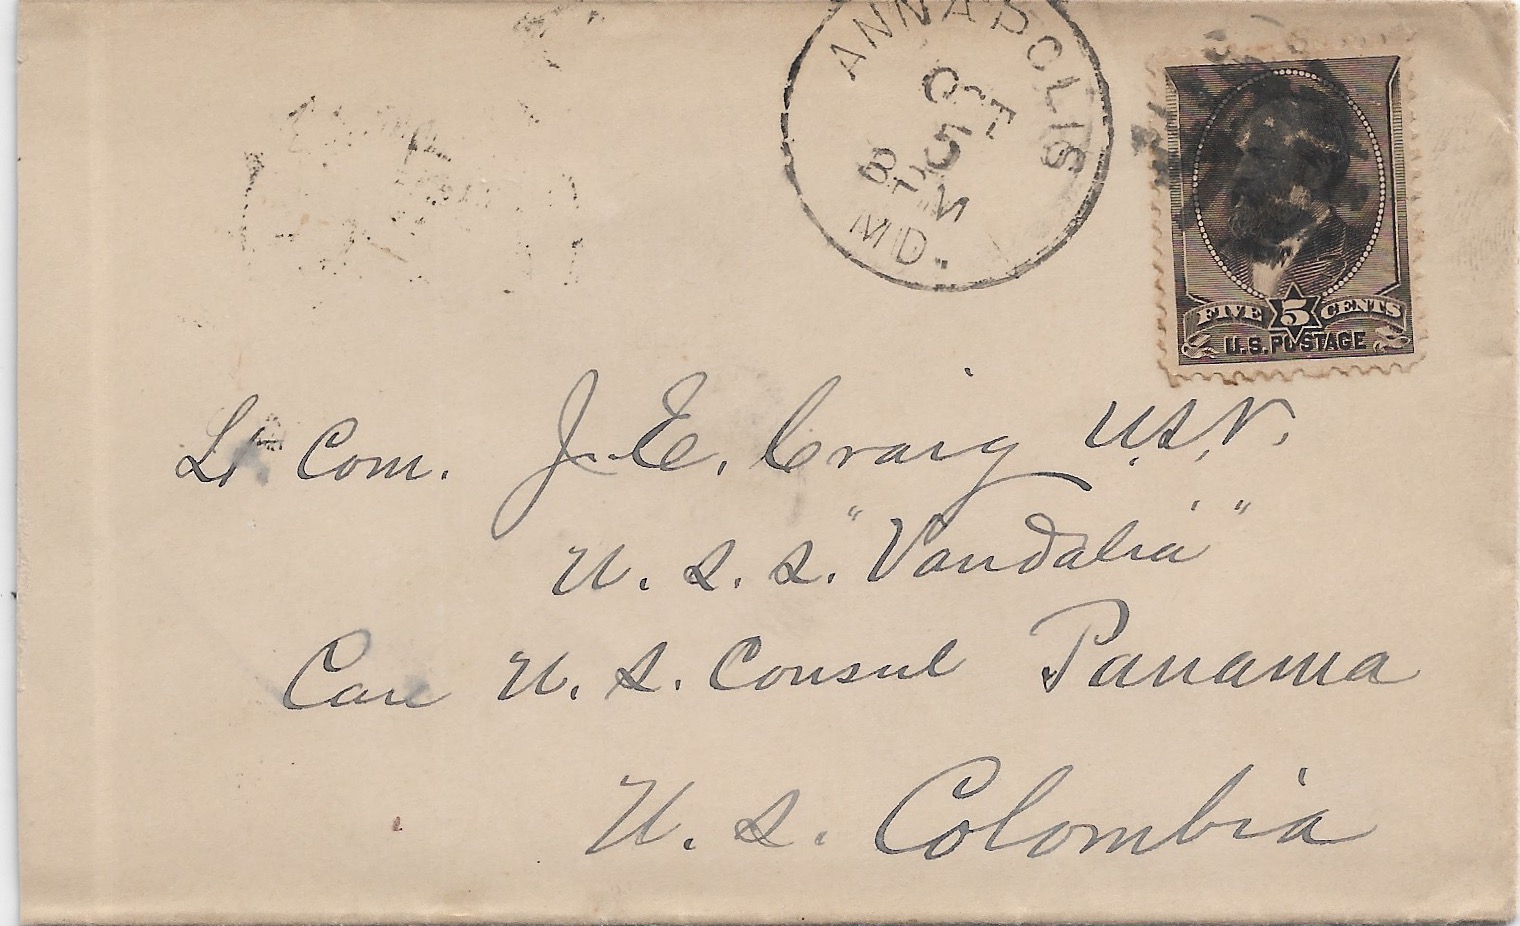 ANNAPOLIS
OCT
5
8 PM
MD.
FIVE 5 CENTS
U.S. POSTAGE
Lt Com. J. E. Craig U.S.N.
U. S. S. "Vandalia"
Care U. S. Consul Panama
U. S. Colombia